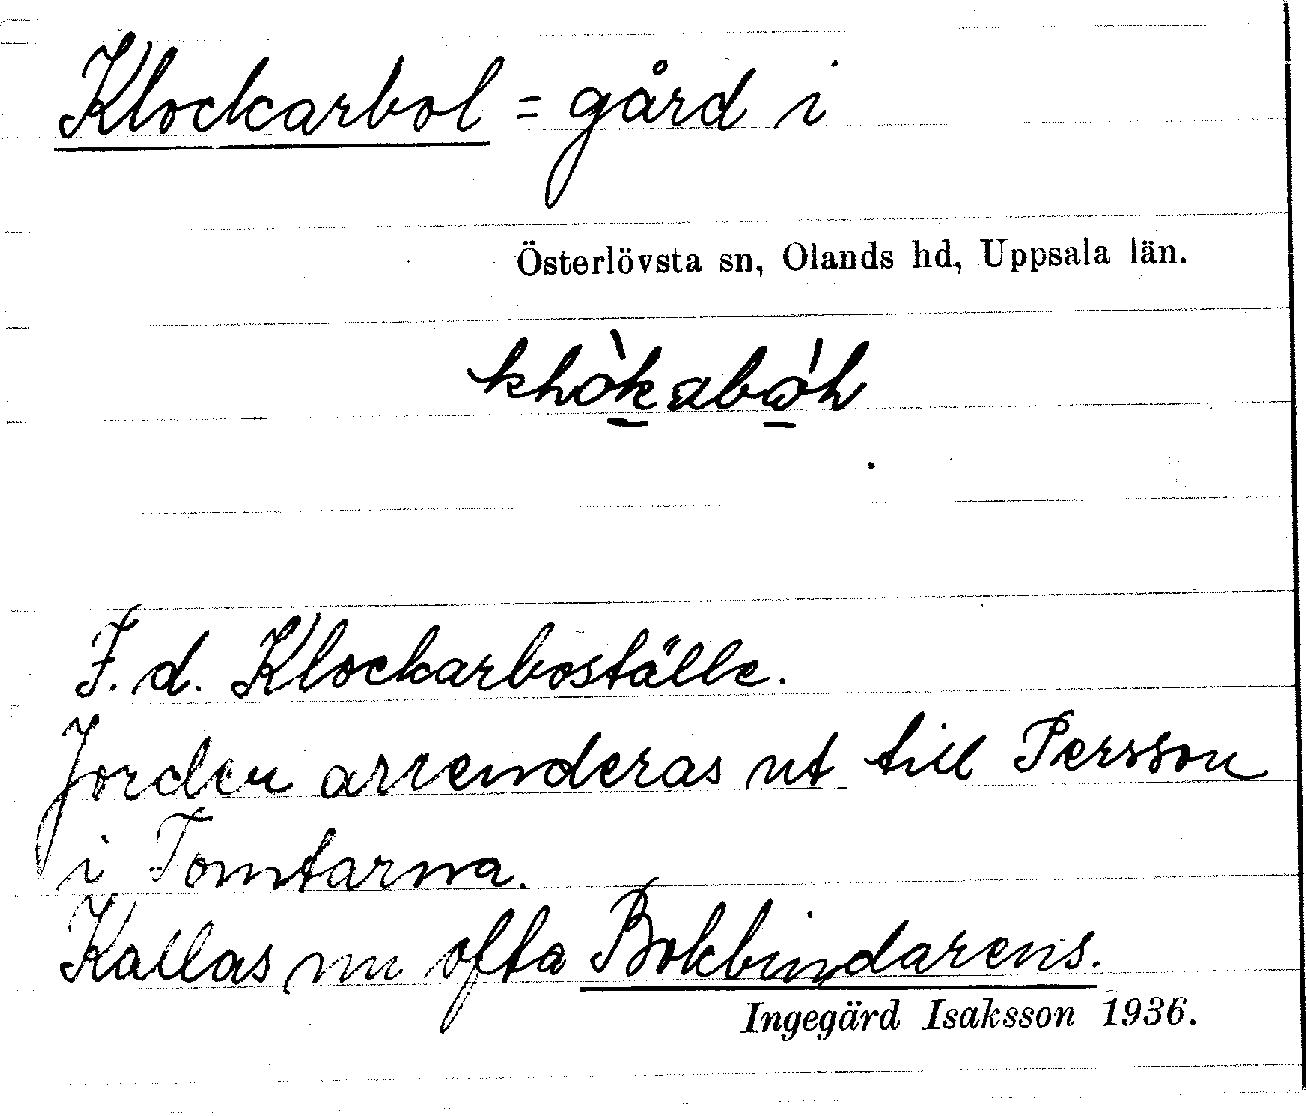 Klockarbol = gård i
Österlövsta sn, Olands hd, Uppsala län.
F. d. Klockarboställe.
Jorden arrenderas ut till Persson
i Tomtarna.
Kallas nu ofta Bokbindarens.
Ingegärd Isaksson 1936.